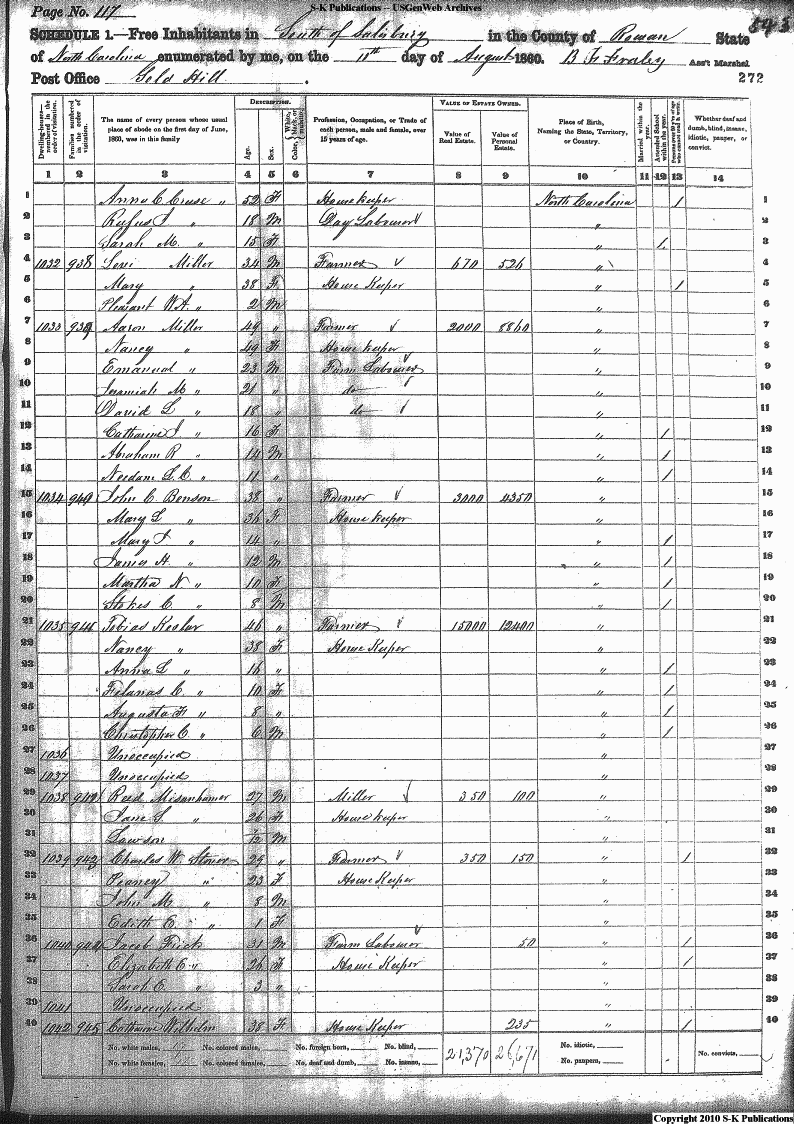 S-K Publications – USGenWeb Archives
Page No. 117
593
SCHEDULE 1.—Free Inhabitants in South of Salisbury in the County of Rowan State
of North Carolina enumerated by me, on the 11th day of August 1860. B F Fraley Ass't Marshal
Post Office Gold Hill.
272
Dwelling-houses—numbered in the order of visitation. Families numbered in the order of visitation. The name of every person whose usual place of abode on the first day of June, 1860, was in this family Description. Age. Sex. Color, White, black, or mulatto. Profession, Occupation, or Trade of each person, male and female, over 15 years of age. Value of Estate Owned. Value of Real Estate. Value of Personal Estate. Place of Birth, Naming the State, Territory, or Country. Married within the year. Attended School within the year. Whether deaf and dumb, blind, insane, idiotic, pauper, or convict.
1 2 3 4 5 6 7 8 9 10 11 12 13 14
1 Anna C Cruse " 52 F House keeper North Carolina / 1
2 Rufus J " 18 M Day Labourer " 2
3 Sarah M. " 15 F " / 3
4 1032 938 Levi Miller 34 M Farmer 670 526 " 4
5 Mary " 38 F House Keeper " / 5
6 Pleasant W.A. " 2 M " 6
7 1033 939 Aaron Miller 49 " Farmer 2000 8860 " 7
8 Nancy " 49 F House keeper " 8
9 Emanuel " 23 M Farm Labourer " 9
10 Jeremiah M " 21 " do " 10
11 David L " 18 " do " 11
12 Catharine J " 16 F " / 12
13 Abraham R " 14 M " / 13
14 Needam L.C. " 11 " " / 14
15 1034 940 John C Benson 38 " Farmer 3000 4350 " 15
16 Mary L " 36 F House keeper " 16
17 Mary J " 14 " " / 17
18 James H. " 12 M " / 18
19 Martha N " 10 F " / 19
20 Stokes C. " 8 M " / 20
21 1035 941 Tobias Kesler 46 " Farmer 15000 12400 " 21
22 Nancy " 38 F House Keeper " 22
23 Anna L " 16 " " / 23
24 C. " 10 F " / 24
25 Augusta F " 8 " " / 25
26 Christopher C " 6 M " / 26
27 1036 Unoccupied " 27
28 1037 Unoccupied " 28
29 1038 942 Reed Misenhamer 27 M Miller 350 100 " 29
30 Jane L " 26 F House keeper " 30
31 Lawson /12 M " 31
32 1039 943 Charles W. Stoner 29 " Farmer 350 150 " / 32
33 " 23 F House Keeper " 33
34 John M " 8 M " 34
35 Edith C " 1 F " 35
36 1040 944 Jacob Frick 31 M Farm Labourer 50 " / 36
37 Elizabeth C " 26 F House Keeper " / 37
38 Sarah C. " 3 " " 38
39 1041 Unoccupied " 39
40 1042 945 Catharine Wilhelm 38 F House Keeper 235 " / 40
No. white males, No. colored males, No. foreign born, No. blind, 21,370 26,671 No. idiotic, No. convicts,
No. white females, No. colored females, No. deaf and dumb, No. insane, No. paupers,
Copyright 2010 S-K Publications